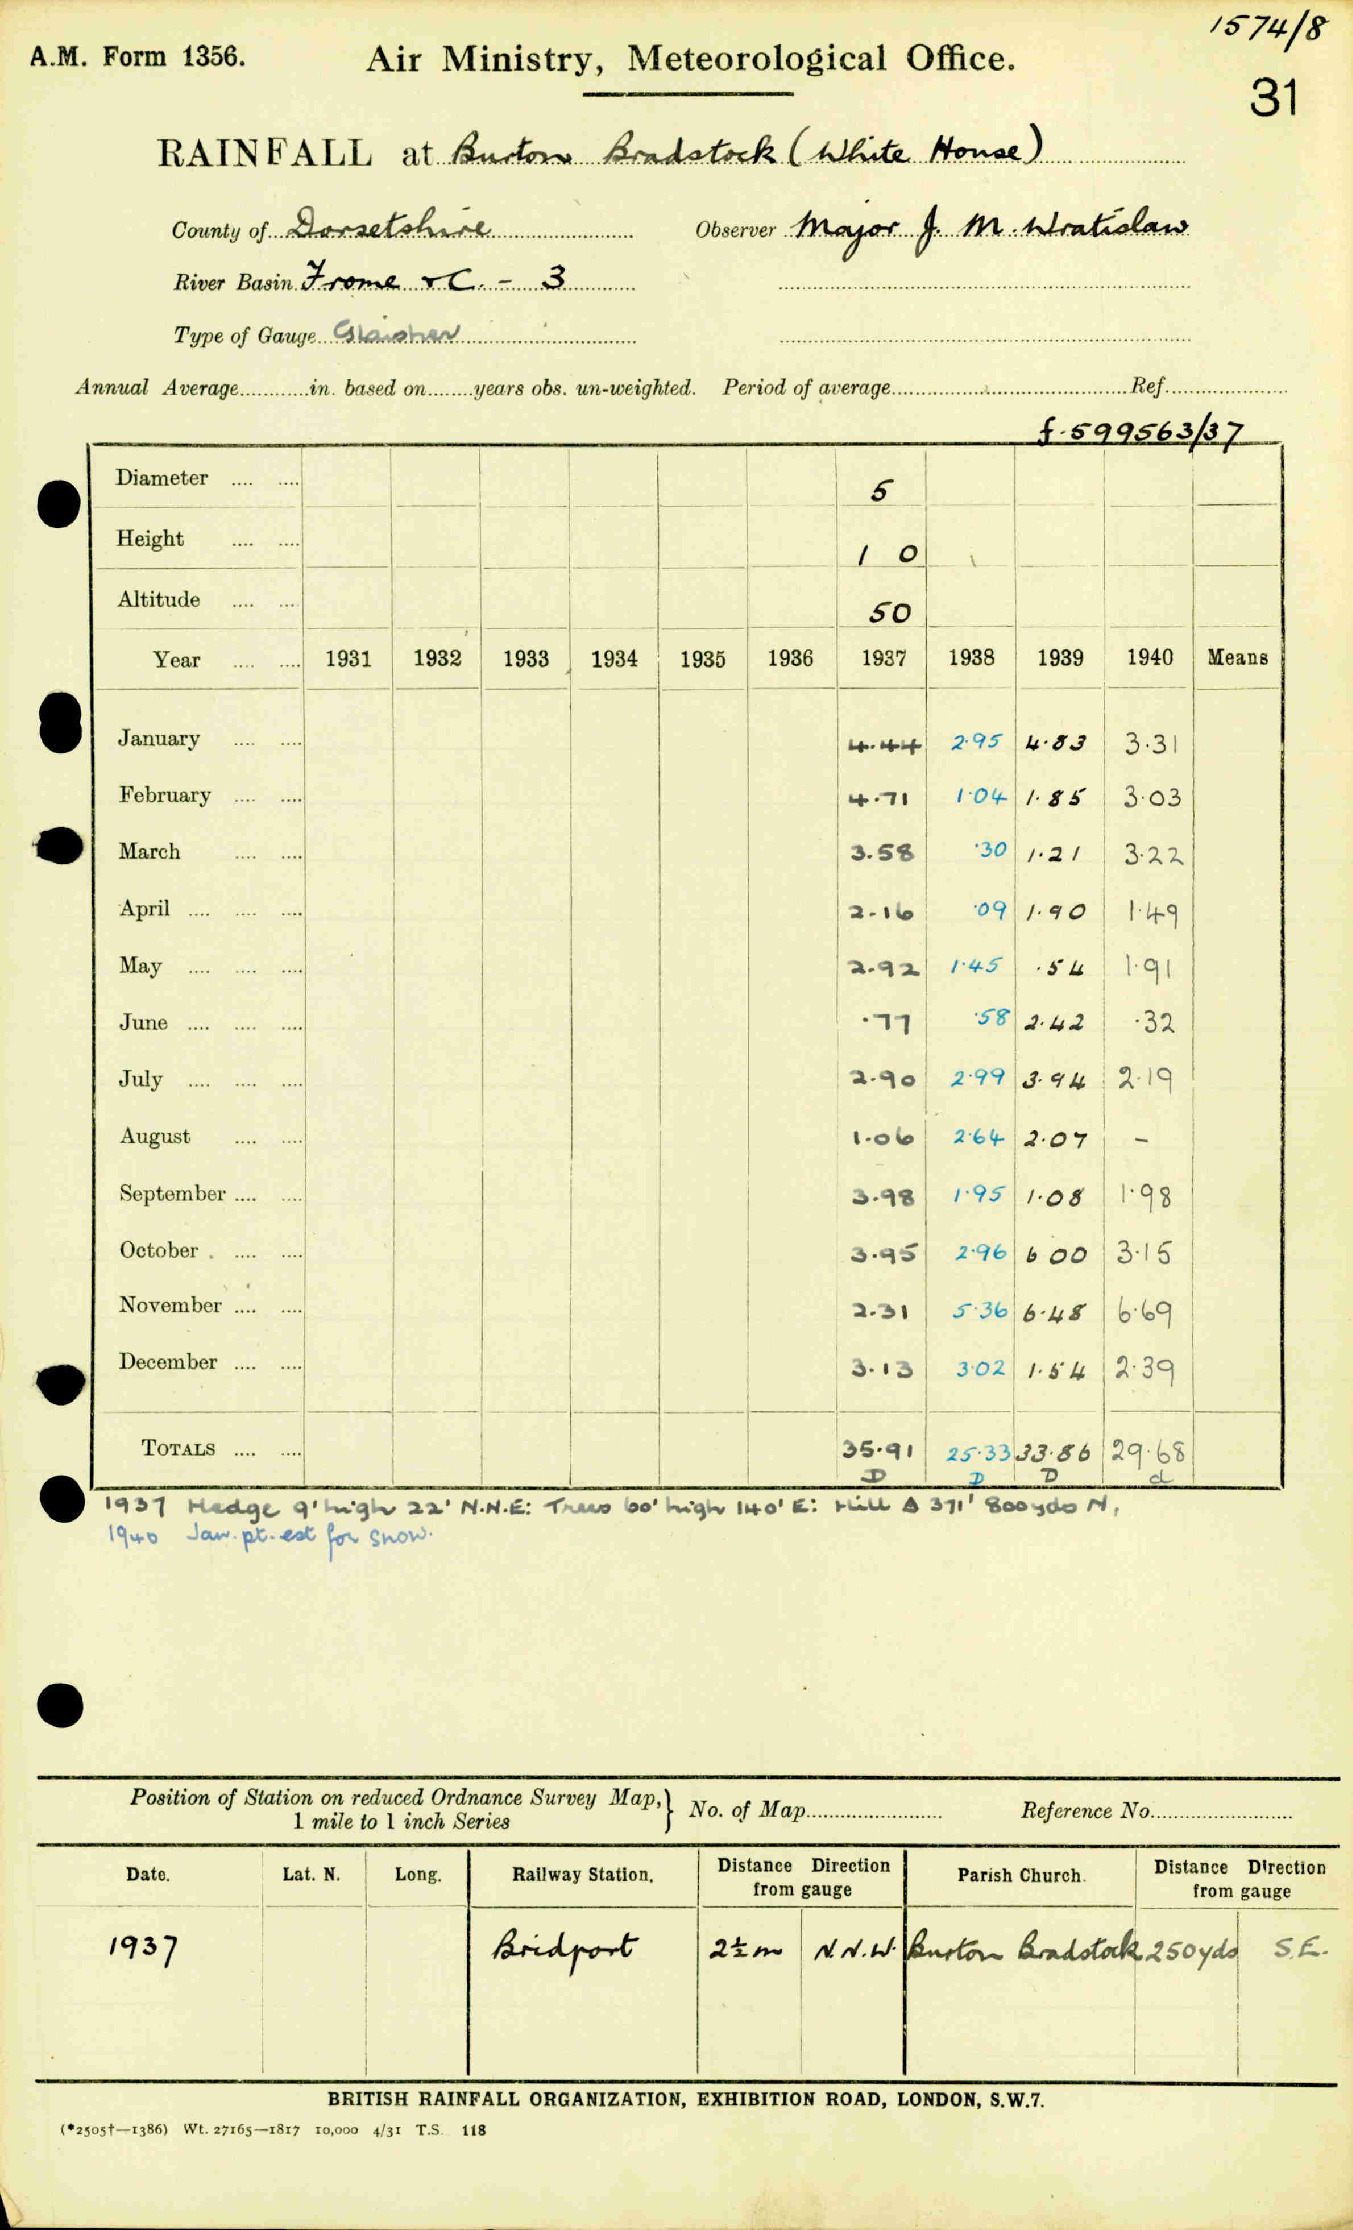 1574/8
A.M. Form 1356. Air Ministry, Meteorological Office.
31
RAINFALL at Burton Bradstock (White House)
County of Dorsetshire Observer Major J. M. Wratislaw
River Basin Frome &C. - 3
Type of Gauge Glaisher
Annual Average............in. based on........years obs. un-weighted. Period of average........................................Ref.....................
f. 599563/37
Diameter .... .... 5
Height .... .... 1 0
Altitude .... .... 50
Year .... .... 1931 1932 1933 1934 1935 1936 1937 1938 1939 1940 Means
January .... .... 4.44 2.95 4.83 3.31
February .... .... 4.71 1.04 1.85 3.03
March .... .... 3.58 .30 1.21 3.22
April .... .... .... 2.16 .09 1.90 1.49
May .... .... .... 2.92 1.45 .54 1.91
June .... .... .... .77 .58 2.42 .32
July .... .... .... 2.90 2.99 3.94 2.19
August .... .... 1.06 2.64 2.07 -
September .... .... 3.98 1.95 1.08 1.98
October .... .... 3.95 2.96 6 00 3.15
November .... .... 2.31 5.36 6.48 6.69
December .... .... 3.13 3.02 1.54 2.39
TOTALS .... .... 35.91 25.33 33.86 29.68
D D D d
1937 Hedge 9' high 22' N.N.E: Trees 60' high 140' E: Hill Δ 371' 800yds N,
1940 Jan. pt. est for snow.
Position of Station on reduced Ordnance Survey Map,} No. of Map........................ Reference No.........................
1 mile to 1 inch Series
Date. Lat. N. Long. Railway Station. Distance Direction from gauge Parish Church. Distance Direction from gauge
1937 Bridport 2½ m N.N.W. Burton Bradstock 250yds S.E.
BRITISH RAINFALL ORGANIZATION, EXHIBITION ROAD, LONDON, S.W.7.
(*2505†—1386) Wt. 27165—1817 10,000 4/31 T.S. 118